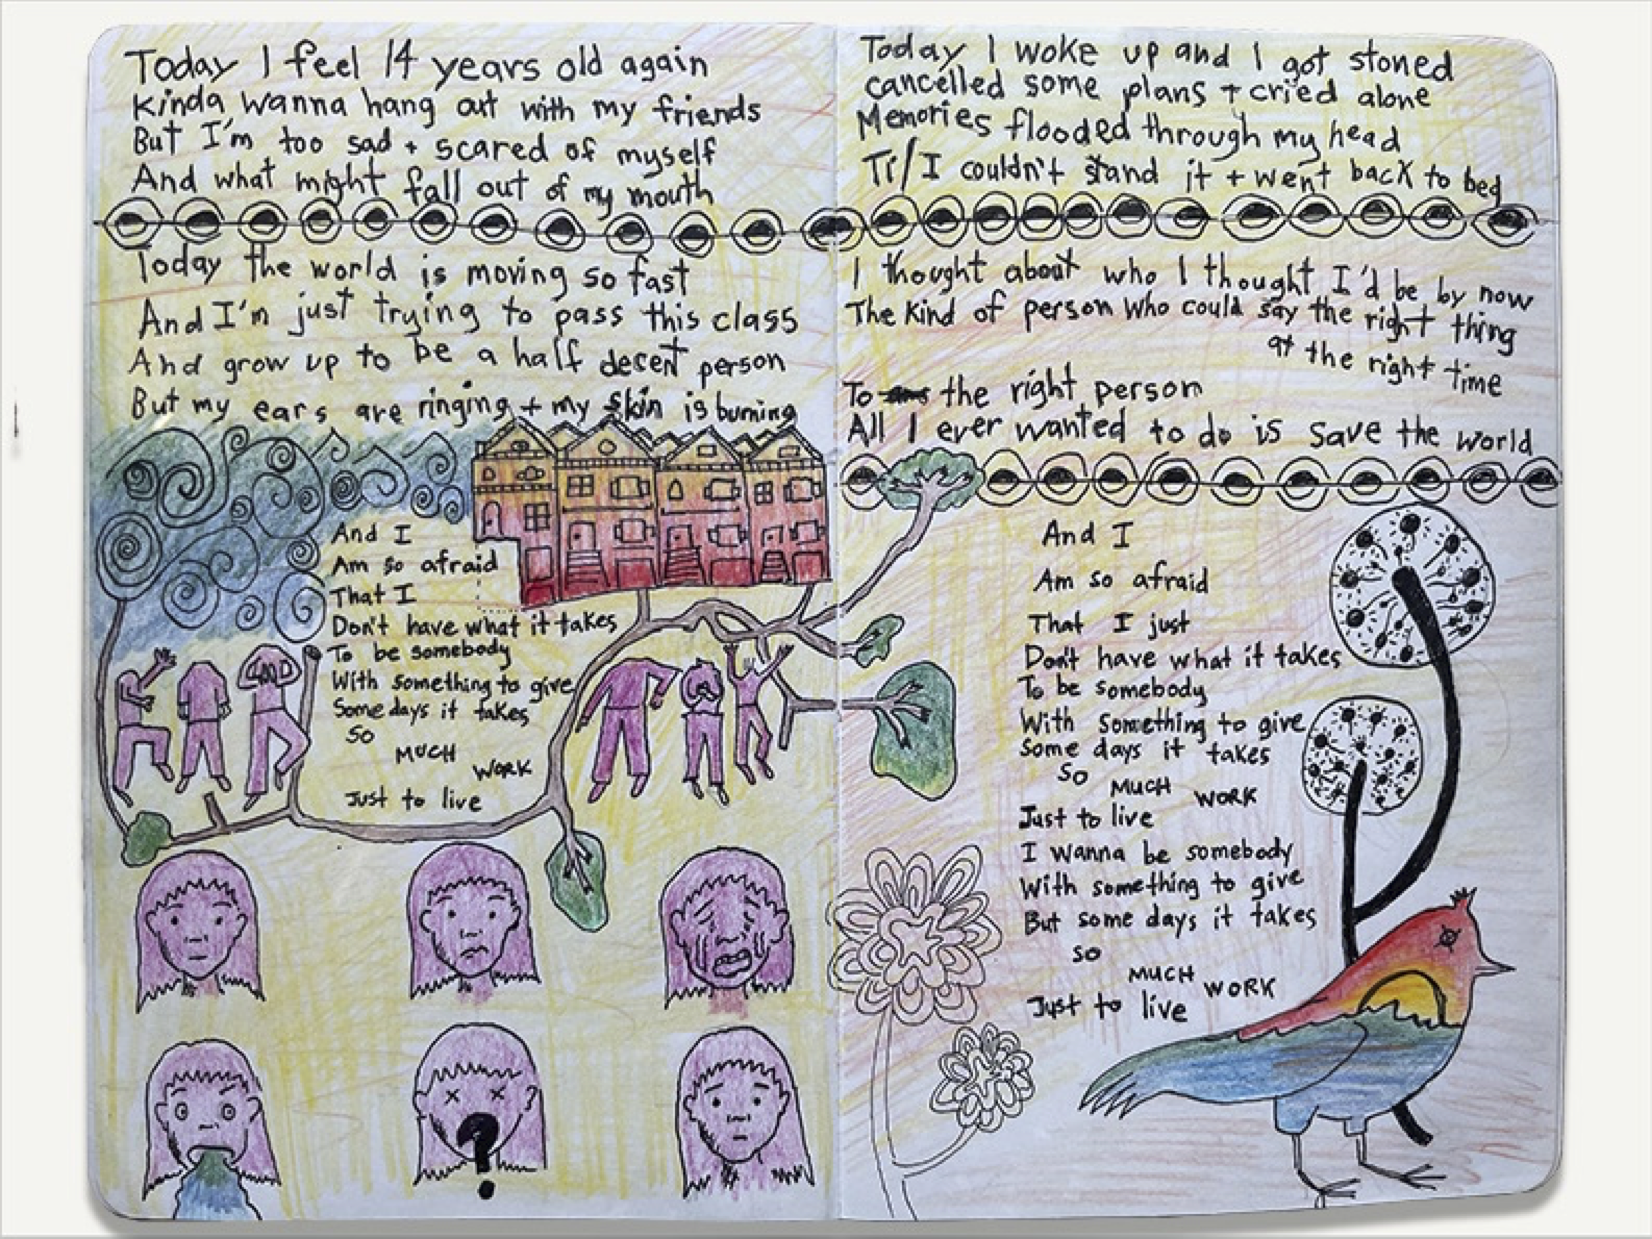 Today I feel 14 years old again
Kinda wanna hang out with my friends
But I'm too sad + scared of myself
And what might fall out of my mouth
Today the world is moving so fast
And I'm just trying to pass this class
And grow up to be a half decent person
But my ears are ringing + my skin is burning
And I
Am so afraid
That I
Don't have what it takes
To be somebody
With something to give
Some days it takes
So
MUCH
WORK
Just to live
?
Today I woke up and I got stoned
cancelled some plans + cried alone
Memories flooded through my head
Ti/I couldn't stand it + went back to bed
I thought about who I thought I'd be by now
The kind of person who could say the right thing
at the right time
To the right person
All I ever wanted to do is save the world
And I
Am so afraid
That I just
Don't have what it takes
To be somebody
With something to give
Some days it takes
So
MUCH
WORK
Just to live
I wanna be somebody
With something to give
But some days it takes
so
MUCH
WORK
Just to live